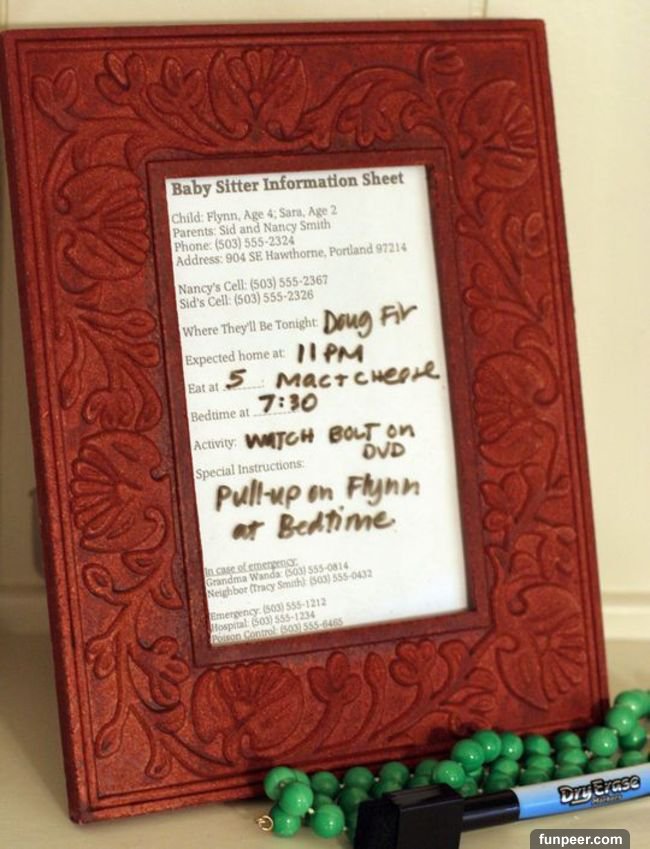 Baby Sitter Information Sheet
Child: Flynn, Age 4; Sara, Age 2
Parents: Sid and Nancy Smith
Phone: (503) 555-2324
Address: 904 SE Hawthorne, Portland 97214
Nancy's Cell: (503) 555-2367
Sid's Cell: (503) 555-2326
Where They'll Be Tonight: Doug Fir
Expected home at: 11 PM
Eat at 5 : Mac + Cheese
Bedtime at 7:30
Activity: WATCH BOLT on
DVD
Special Instructions:
Pull-up on Flynn
at Bedtime
In case of emergency:
Grandma Wanda: (503) 555-0814
Neighbor (Tracy Smith): (503) 555-0432
Emergency: (503) 555-1212
Hospital: (503) 555-1234
Poison Control: (503) 555-6465
Dry Erase
Markers
funpeer.com